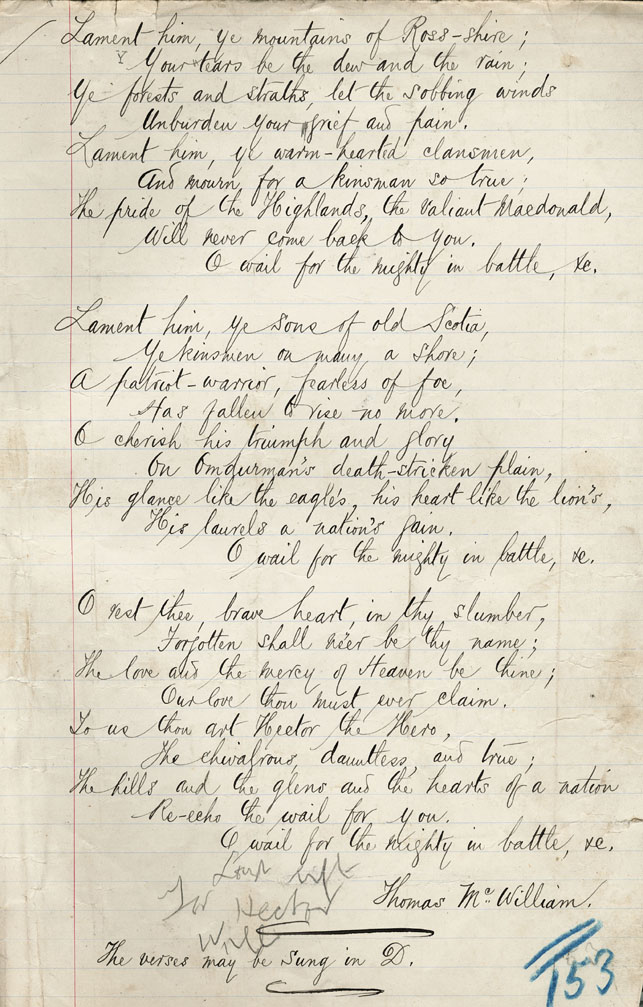 Lament him, ye mountains of Ross-shire;
Your tears be the dew and the rain;
Ye forests and straths, let the sobbing winds
Unburden your grief and pain.
Lament him, ye warm-hearted clansmen,
And mourn for a kinsman so true;
The pride of the Highlands, the valiant Macdonald,
Will never come back to you.
O wail for the mighty in battle, &c.
Lament him, ye sons of old Scotia,
Ye kinsmen on many a shore;
A patriot-warrior, fearless of foe,
Has fallen to rise no more.
O cherish his triumph and glory
On Omdurman's death-stricken plain,
His glance like the eagle's, his heart like the lion's,
His laurels a nation's gain.
O wail for the mighty in battle, &c.
O rest thee, brave heart, in thy slumber,
Forgotten shall ne'er be thy name;
The love and the mercy of Heaven be thine;
Our love thou must ever claim.
To us thou art Hector the Hero,
The chivalrous, dauntless, and true;
The hills and the glens and the hearts of a nation
Re-echo the wail for you.
O wail for the mighty in battle, &c.
Hector
Thomas McWilliam.
The verses may be sung in D.
153